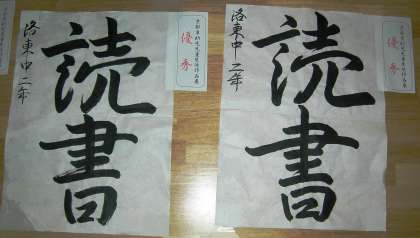 読書
洛東中 二年
優秀
読書
洛東中 二年
優秀